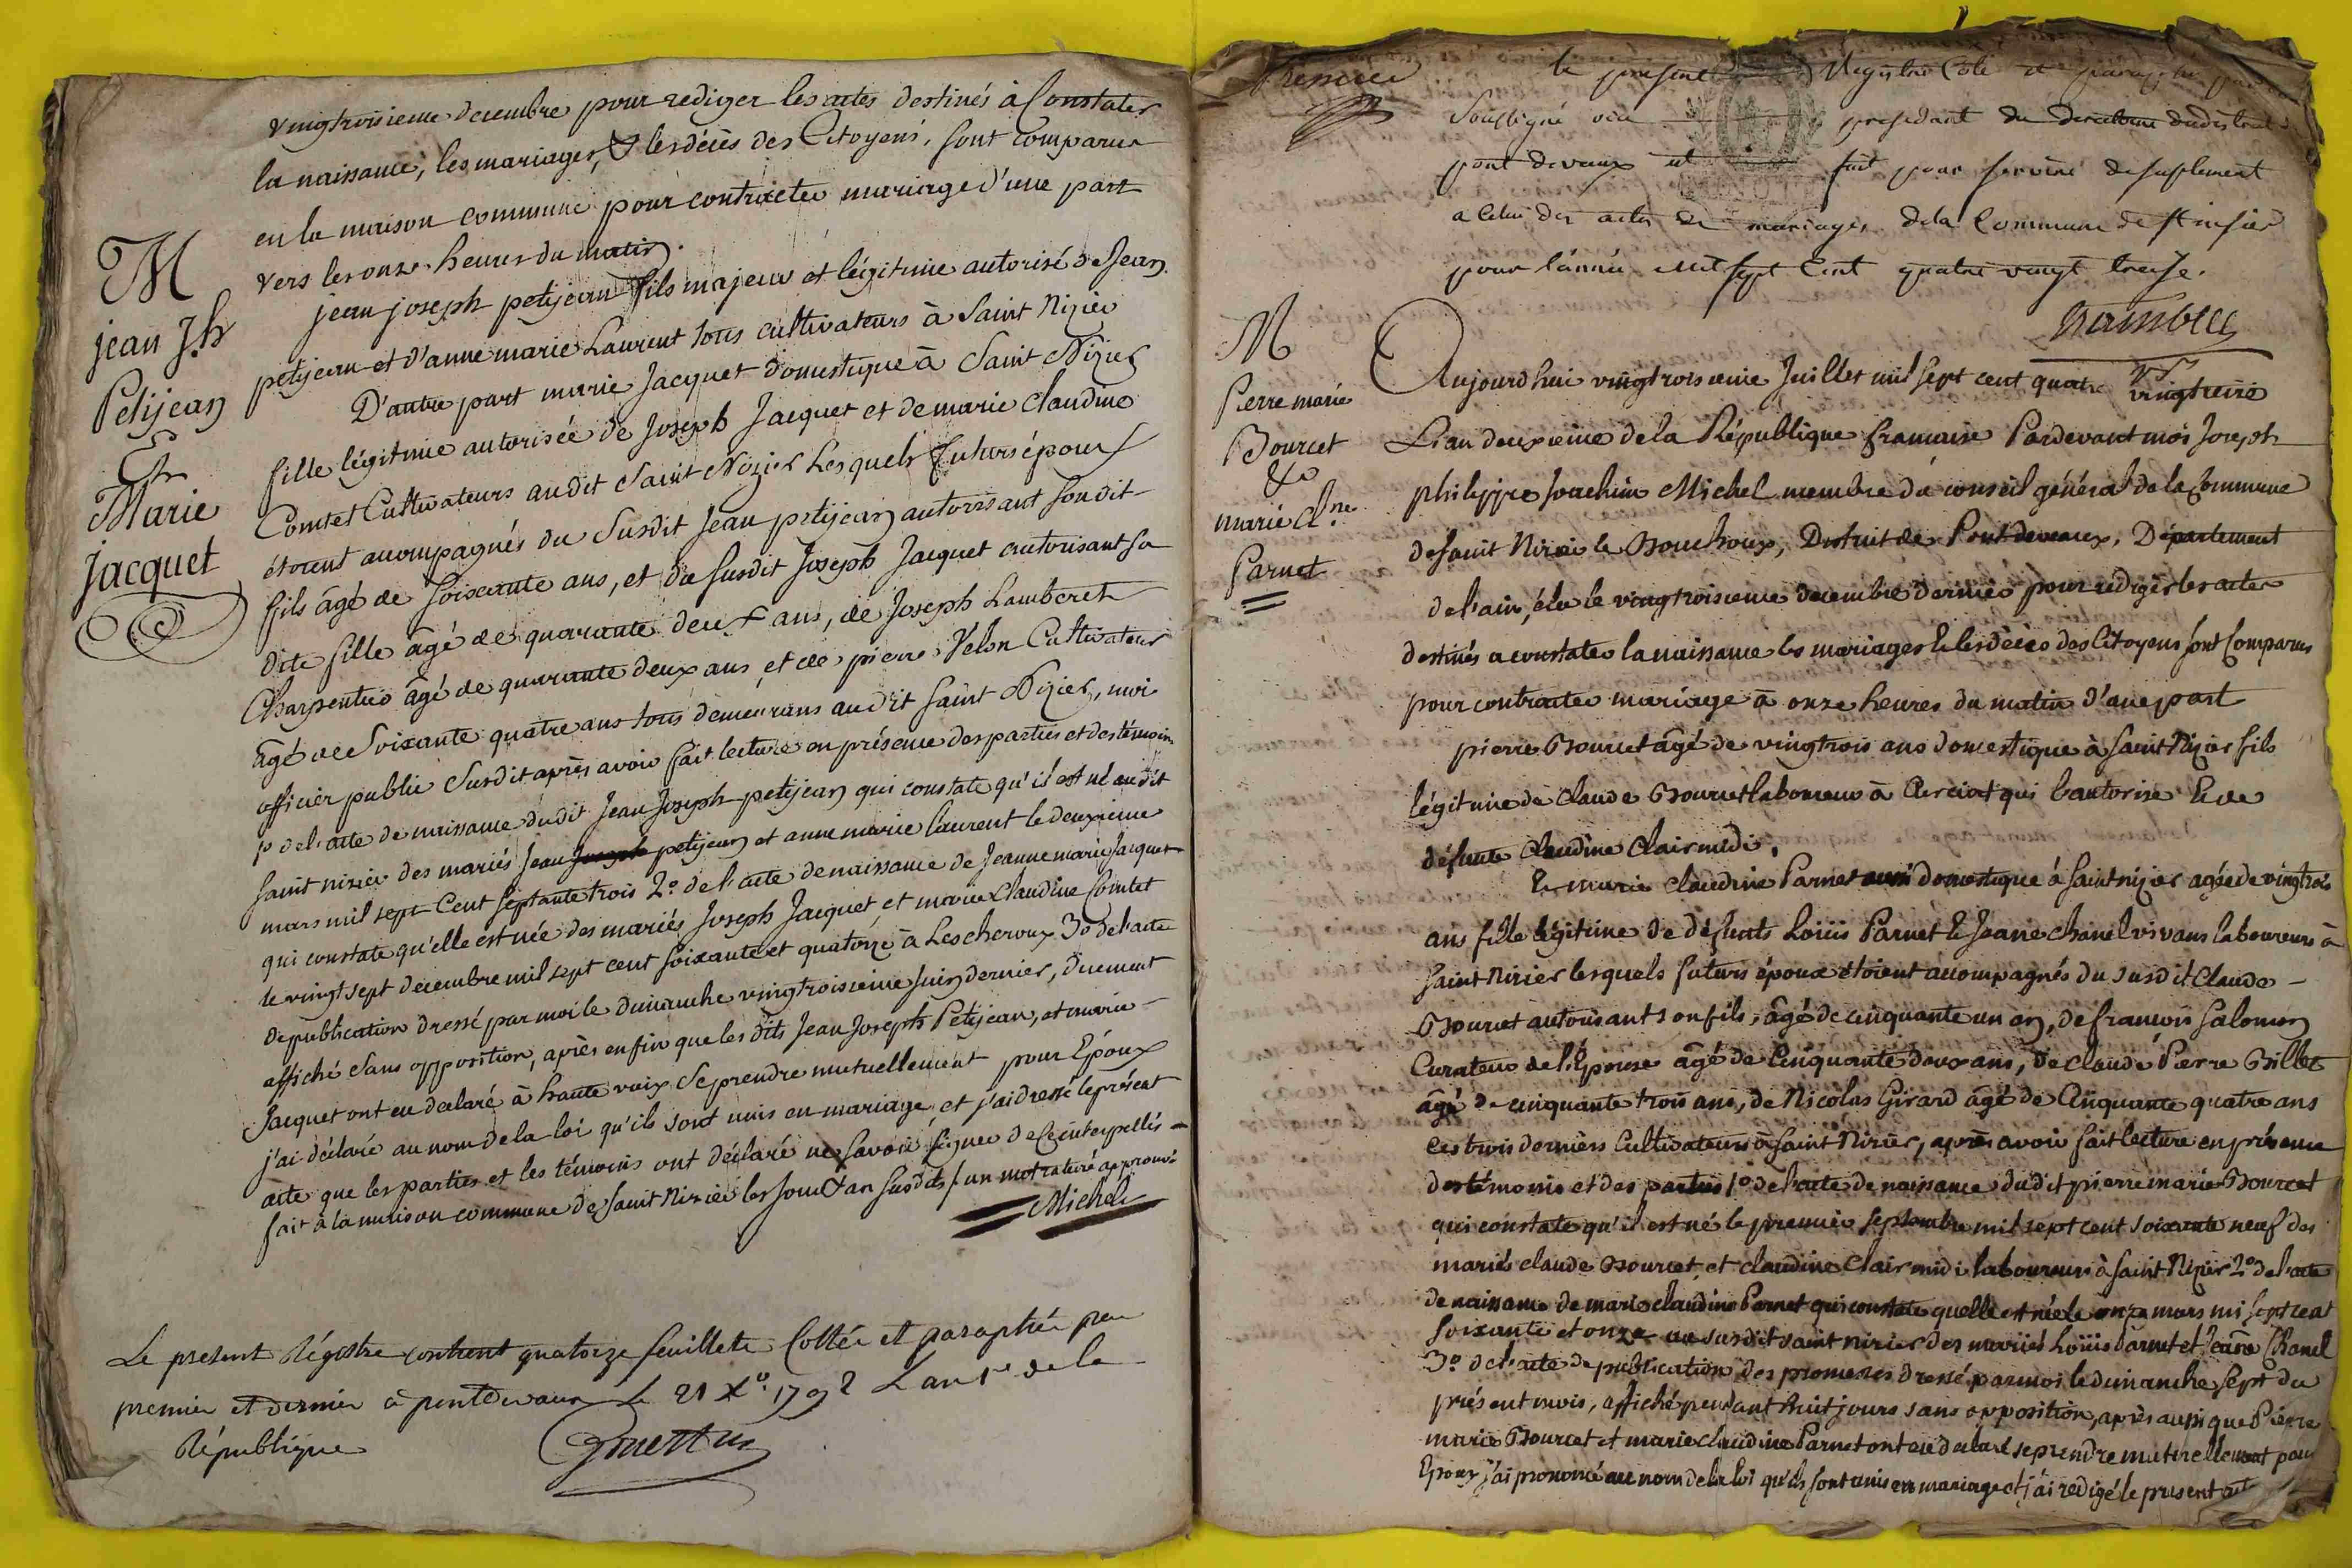 vingtroisieme decembre pour rediger les actes destinés à Constater
la naissance, les mariages, & les décès des Citoyens, sont comparus
en la maison commune pour contracter mariage d'une part
vers les onze heures du matin.
jean joseph petijean fils majeur et légitime autorisé de Jean
petijean et d'anne marie Laurent tous cultivateurs à Saint Nizier
D'autre part marie Jacquet domestique à Saint Nizier
fille légitime autorisée de Joseph Jacquet et de marie Claudine
Comtet Cultivateurs audit Saint Nizier Lesquels futurs époux
étoient accompagnés du Susdit Jean petijean autorisant son dit
fils âgé de soixante ans, et du susdit Joseph Jacquet autorisant sa
dite fille âgé de quarante deux ans, de Joseph Lamberet
Charpentier âgé de quarante deux ans, et de pierre Velon Cultivateur
âgé de Soixante quatre ans tous demeurans audit Saint Nizier, moi
officier public Susdit après avoir fait lecture en présence des parties et des témoins
1º de l'acte de naissance dudit Jean Joseph petijean qui constate qu'il est né audit
Saint nizier des mariés Jean Joseph petijean et anne marie laurent le deuxieme
mars mil sept Cent septante trois 2º de l'acte de naissance de Jeanne marie Jacquet
qui constate qu'elle est née des mariés Joseph Jacquet et marie Claudine Comtet
le vingt sept decembre mil sept cent soixante et quatorze à Lescheroux 3º de l'acte
de publication dressé par moi le dimanche vingtroisieme juin dernier, duement
affiché sans opposition, après enfin que les dits Jean Joseph Petijean, et marie
Jacquet ont eu declaré à haute voix Se prendre mutuellement pour Epoux
j'ai déclaré au nom de la loi qu'ils sont unis en mariage, et j'ai dressé le présent
acte que les parties et les témoins ont déclaré ne savoir signer de ce interpellés
fait à la maison commune de Saint Nizier les jour & an susdits / un mot raturé approuvé
Michel
M
jean J.h
Petijean
&
Marie
Jacquet
Le present Régistre contient quatorze feuillets Cottée et paraphée par
premier et dernier à pontdevaux le 21 Xº. 1792 L'an 1er de la
République
premier
le present Registre Coté et paraphé par
Soussigné vice president du directoire du district
pont devaux et fait pour servire de suplement
a Celui des actes de mariages de la Commune de st nisier
pour l'année mil sept Cent quatre vingt treise.
M
Pierre marie
Bourcet
&
marie Cl.ne
Parnet
Aujourdhui vingtroisieme Juillet mil sept cent quatre vingtreize
L'an deuxieme de la République francaise Pardevant moi Joseph
philippe Joachim Michel membre du conseil général de la Commune
de Saint Nizier le Bouchoux, District de Pontdevaux, Département
de l'ain, élu le vingtroisieme decembre dernier pour rediger les actes
destinés a constater la naissance les mariages & les décès des Citoyens sont Comparus
pour contracter mariage à onze heures du matin d'une part
pierre Bourcet âgé de vingtrois ans domestique à Saint Nizier fils
légitime de Claude Bourcet laboureur à Curciat qui l'autorise & de
défunte Claudine Clairmidi,
Et marie Claudine Parnet aussi domestique à Saint nizier agée de vingtrois
ans fille légitime de défunts Louis Parnet & Jeane Chanel vivans laboureurs à
Saint Nizier lesquels futurs époux étoient accompagnés du susdit Claude
Bourcet autorisant son fils, âgé de cinquante un an, de francois Salomon
Curateur de l'Epouse âgé de Cinquante deux ans, de Claude Pierre Billet
âgé de cinquante trois ans, de Nicolas Girard âgé de Cinquante quatre ans
ces trois derniers Cultivateurs à Saint Nizier, après avoir fait lecture en présence
des témoins et des parties 1º de l'acte de naissance dudit pierre marie Bourcet
qui constate qu'il est né le premier septembre mil sept cent soixante neuf des
mariés claude Bourcet, et claudine Clairmidi laboureurs à Saint Nizier 2º de l'acte
de naissance de marie claudine Parnet qui constate quelle est née le onze mars mi sept cent
soixante et onze au susdit saint nizier des mariés Louis Parnet et Jeane Chanel
3º de l'acte de publication des promesses dressé par moi le dimanche sept du
présent mois, affiché pendant huit jours sans opposition, après aussi que Pierre
marie Bourcet et marie claudine Parnet ont eu declaré se prendre mutuellement pour
Epoux j'ai prononcé au nom de la loi qu'ils sont unis en mariage et j'ai redigé le present acte